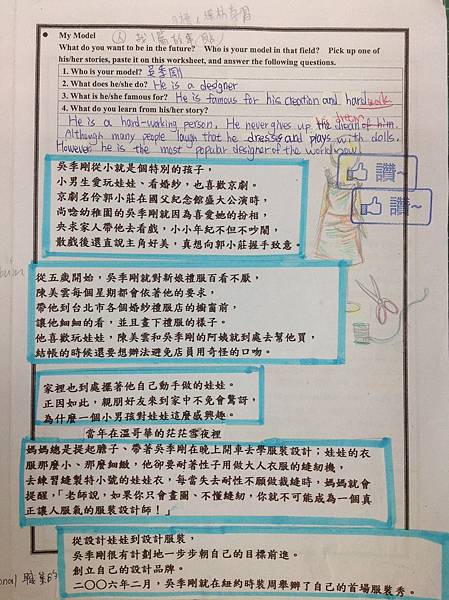 My Model
What do you want to be in the future? Who is your model in that field? Pick up one of
his/her stories, paste it on this worksheet, and answer the following questions.
1. Who is your model? 吳季剛
2. What does he/she do? He is a designer
3. What is he/she famous for? He is famous for his creation and hard work
4. What do you learn from his/her story?
his dream
He is a hard-working person. He never gives up the dream of him.
Although many people laugh that he dresses and plays with dolls.
However he is the most popular designer of the world now.
讚~
讚~
吳季剛從小就是個特別的孩子,
小男生愛玩娃娃、看婚紗,也喜歡京劇。
京劇名伶郭小莊在國父紀念館盛大公演時,
尚唸幼稚園的吳季剛就因為喜愛她的扮相,
央求家人帶他去看戲,小小年紀不但不吵鬧,
散戲後還直說主角好美,真想向郭小莊握手致意。
從五歲開始,吳季剛就對新娘禮服百看不厭,
陳美雲每個星期都會依著他的要求,
帶他到台北市各個婚紗禮服店的櫥窗前,
讓他細細的看,並且畫下禮服的樣子。
他喜歡玩娃娃,陳美雲和吳季剛的阿姨就到處去幫他買,
結帳的時候還要想辦法避免店員用奇怪的口吻。
家裡也到處擺著他自己動手做的娃娃。
正因如此,親朋好友來到家中不免會驚訝,
為什麼一個小男孩對娃娃這麼感興趣。
當年在溫哥華的茫茫雪夜裡
媽媽總是提起膽子、帶著吳季剛在晚上開車去學服裝設計;娃娃的衣
服那麼小、那麼細緻,他卻要耐著性子用做大人衣服的縫紉機,
去練習縫製特小號的娃娃衣,每當失去耐性不願做裁縫時,媽媽就會
提醒,「老師說,如果你只會畫圖、不懂縫紉,你就不可能成為一個真
正讓人服氣的服裝設計師!」
從設計娃娃到設計服裝,
吳季剛很有計劃地一步步朝自己的目標前進。
創立自己的設計品牌。
二〇〇六年二月,吳季剛就在紐約時裝周舉辦了自己的首場服裝秀。